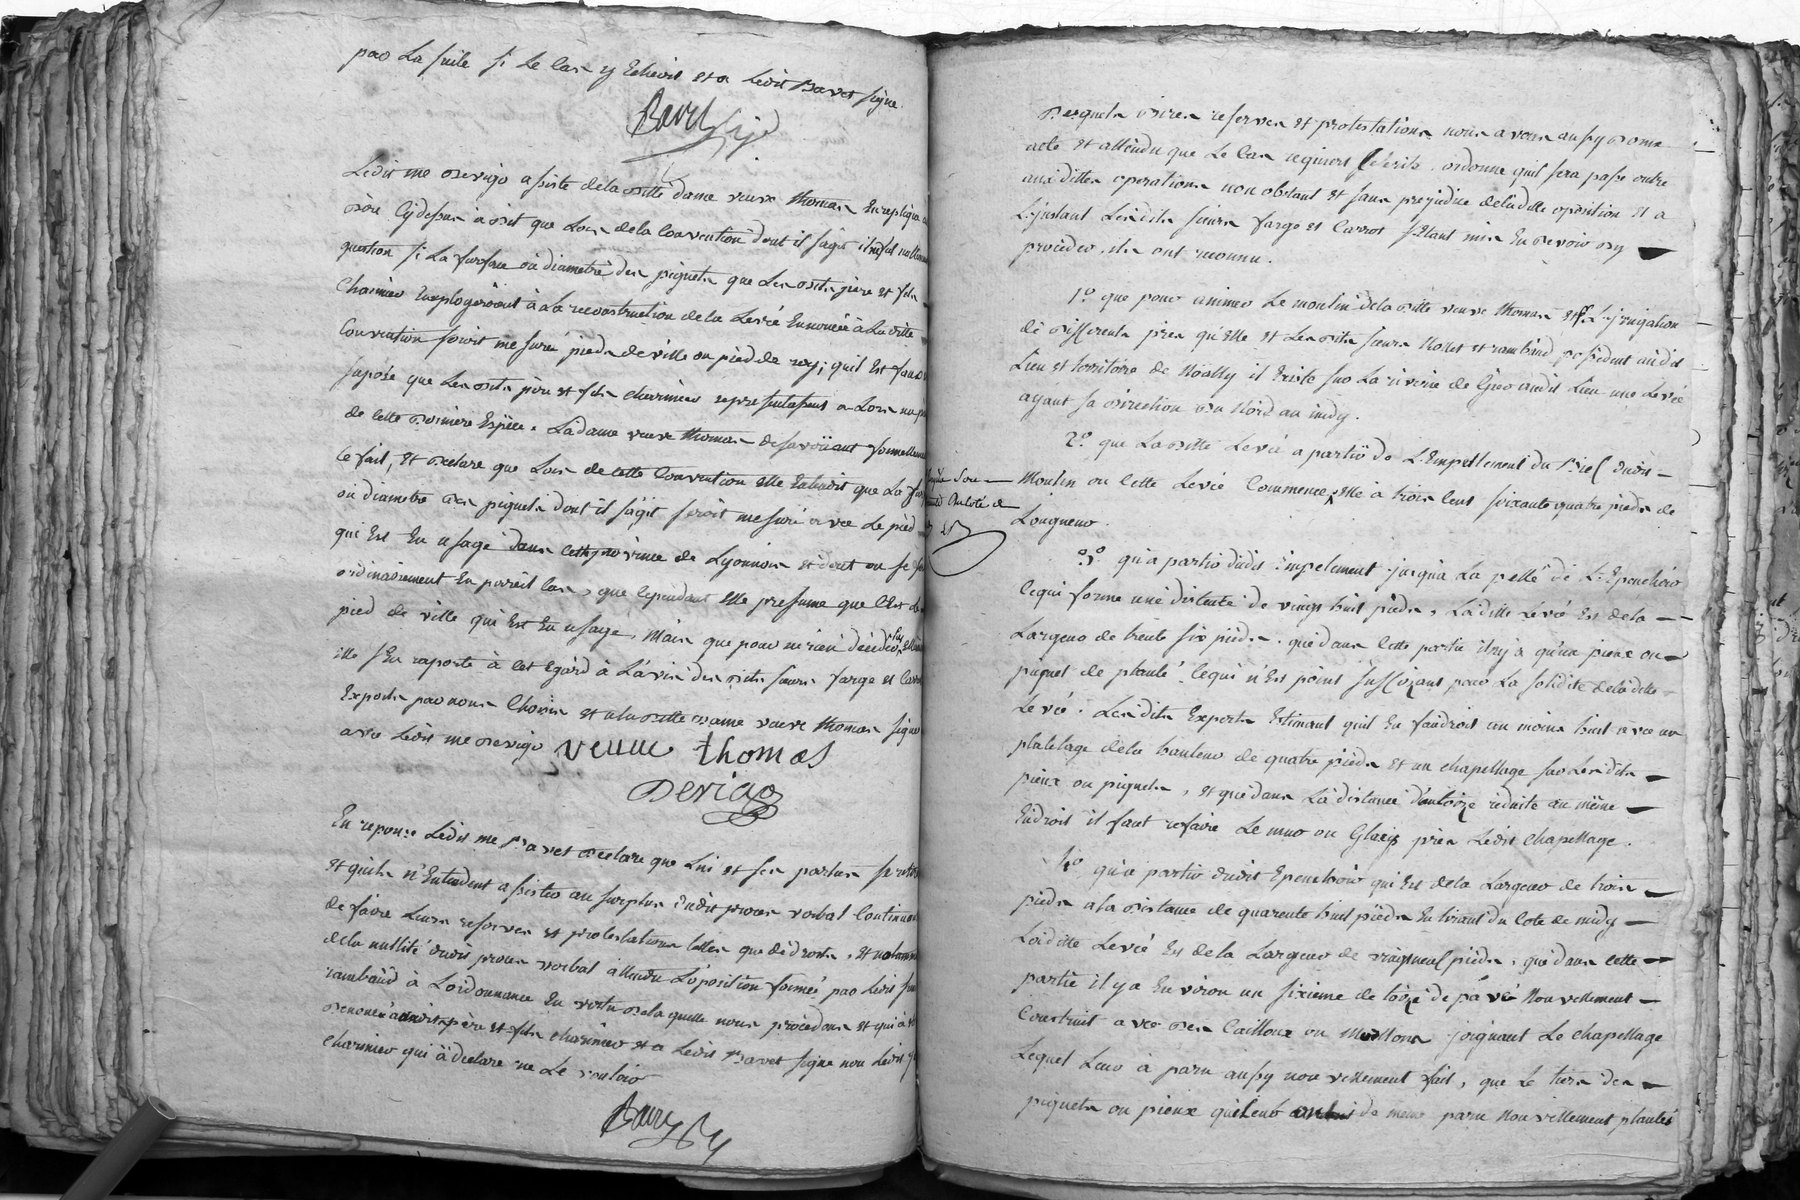 par La suite si Le Cas y Echeoit et a Ledit Bavet signé.
Bavet
Ledit me Derigo assisté de la ditte dame veuve thomas En replique au
dire Cydessus à dit que Lors de la Convention dont il sagit il n'est nullement
question si La surface où diametre des piquets que Les dits père et fils
Charmier Employeroient à la reconstruction de la Levée Ennoncée à La ditte
Convention seroit mesuré pieds de ville ou pied de roy; quil Est faux et
suposé que Les dits père et fils charmier representassent alors un pied
de cette derniere Espèce. Ladame veuve thomas désavoüant formellement
le fait, et declare que Lors de cette Convention Elle Entendit que La surface
où diametre des piquets dont il sagit seroit mesuré avec Le pied
qui Est En usage dans cette province de Lyonnois et dont on se sert
ordinairement En pareil Cas, que Cependant Elle presume que C'est le
pied de ville qui Est En usage, mais que pour ne rien décider
Elle s'En raporte à Cet Egard à L'avis des dits sieurs farge et Carrot
Experts par nous Choisis et a la ditte dame veuve thomas signé
avec Ledit me Derigo veuue thomas
Derigo
En reponse Ledit me Bavet declare que Lui et ses parties se retirent
et quils n'Entendent assister au surplus dudit procès verbal Continuant
de faire Leurs reserves et protestations telles que de droit, et notamment
de la nullité dudit procès verbal attendu L'oposition formée par Ledit sieur
rambaud à L'ordonnance En vertu de la quelle nous procedons et qui a été
denoncée auxdits père et fils charmier et a Ledit Bavet signé non Ledit
charmier qui a declaré ne Le vouloir
Bavet
Desquels dires reserves et protestations nous avons aussy donné
acte et attendu que Le Cas requiert Celerité, ordonné quil sera passé outre
aux dittes operations non obstant et sans prejudice de la ditte oposition et a
L'instant Lesdits sieurs farge et Carrot s'Etant mis En devoir d'y
proceder, ils ont reconnu.
1.° que pour animer Le moulin de la ditte veuve thomas et L'irrigation
de differents prés qu'Elle et Les dits sieurs Nollet et rambaud possedent audit
Lieu et territoire de Noally il Existe sur La riviere de Gier audit Lieu une Levée
ayant sa direction du Nord au midy.
2.° que La ditte Levée a partir de L'Empellement du Bief dudit
Moulin ou Cette Levée Commence, Elle à trois Cent soixante quatre pieds de
Longueur.
du Coté de
3.° qu'a partir dudit Empelement jusqu'a La pelle de L'Epenchoir
Cequi forme une distence de vingt huit pieds, Laditte Levée Est de la
Largeur de trente six pieds. que dans Cette partie il n'y a qu'un pieux ou
piquet de planté. Cequi n'Est point suffizant pour La solidité de la ditte
Levée. Lesdits Experts Estimant quil En faudroit au moins huit avec un
platelage de la hauteur de quatre pieds et un chapellage sur Lesdits
pieux ou piquets, et que dans La distance d'une toize reduite au même
Endroit il faut refaire Le mur ou Glacis près Ledit Chapellage.
4.° qu'a partir dudit Epenchoir qui Est de la Largeur de trois
pieds a la distance de quarente huit pieds En tirant du Coté de midy
Laditte Levée Est de la Largeur de vingt neuf pieds, que dans Cette
partie il y a Environ un sixieme de toize de pavé Nouvellement
Construit avec des Cailloux ou Moillons joignant Le Chapellage
Lequel Leur à paru aussy nouvellement fait, que Le tiers des
piquets ou pieux de meme paru Nouvellement plantés